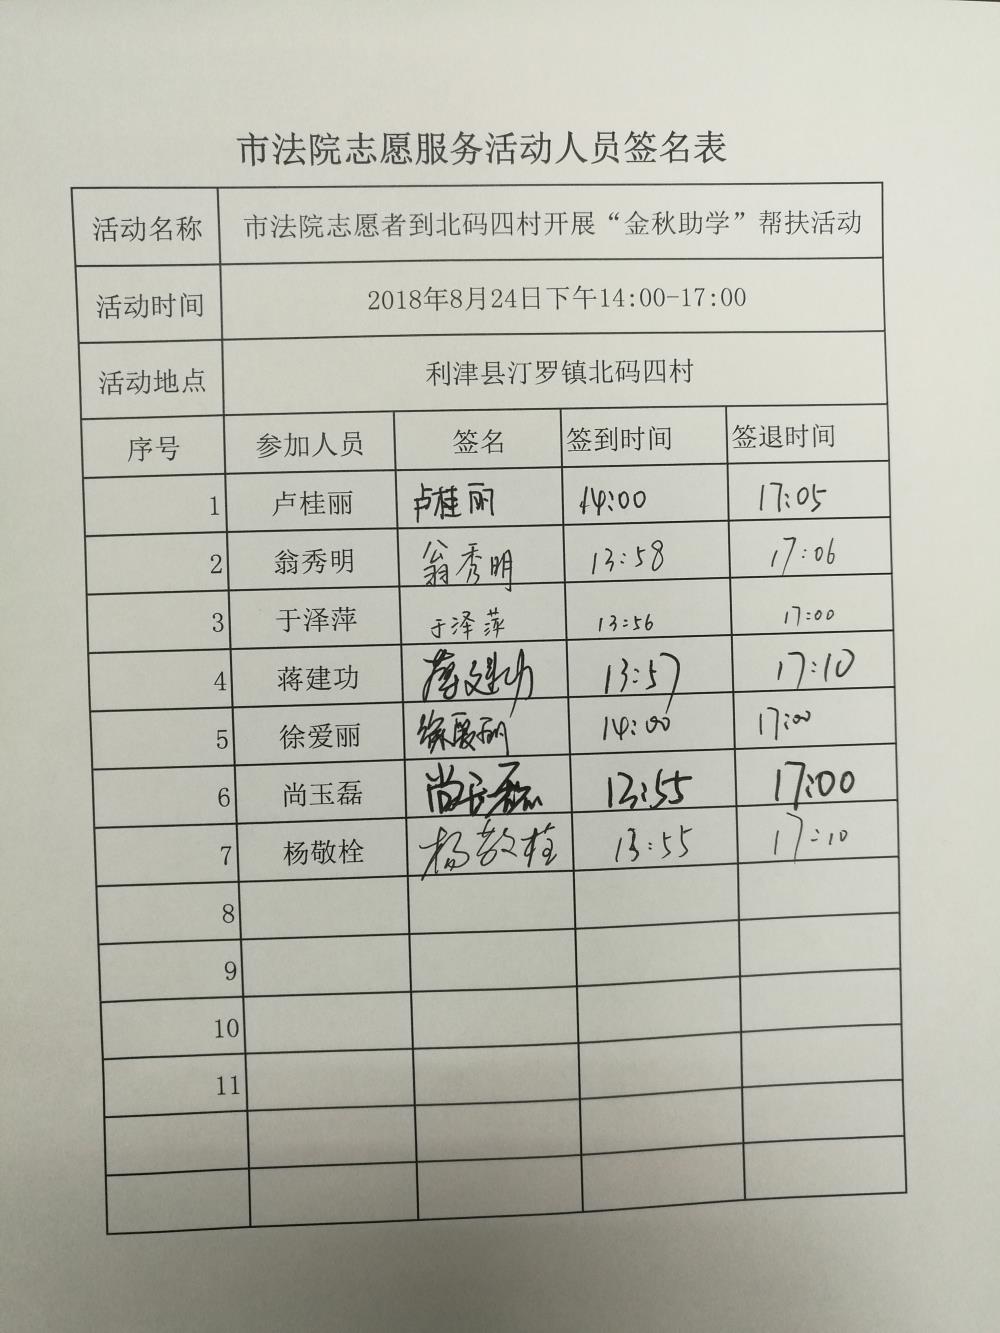 市法院志愿服务活动人员签名表
活动名称 市法院志愿者到北码四村开展“金秋助学”帮扶活动
活动时间 2018年8月24日下午14:00-17:00
活动地点 利津县汀罗镇北码四村
序号 参加人员 签名 签到时间 签退时间
1 卢桂丽 卢桂丽 14:00 17:05
2 翁秀明 翁秀明 13:58 17:06
3 于泽萍 于泽萍 13:56 17:00
4 蒋建功 蒋建功 13:57 17:10
5 徐爱丽 徐爱丽 14:00 17:00
6 尚玉磊 尚玉磊 13:55 17:00
7 杨敬栓 杨敬栓 13:55 17:10
8
9
10
11